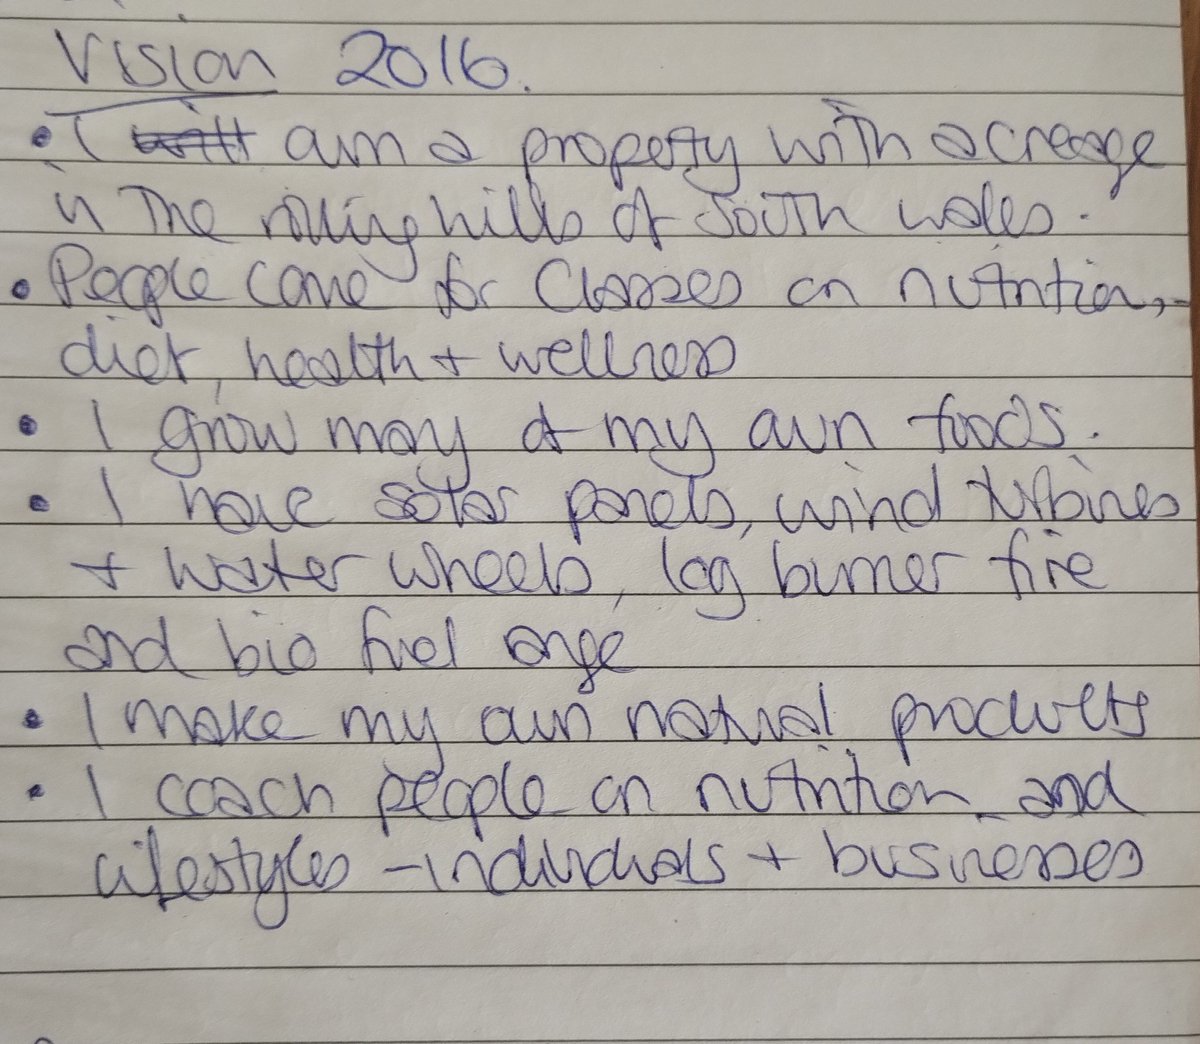 Vision 2016.
• I will own a property with acreage
in the rolling hills of South Wales.
• People come for Classes on nutrition,
diet, health + wellness
• I grow many of my own foods.
• I have solar panels, wind turbines
+ water wheels, log burner fire
and bio fuel
• I make my own natural products
• I coach people on nutrition and
lifestyles - individuals + businesses